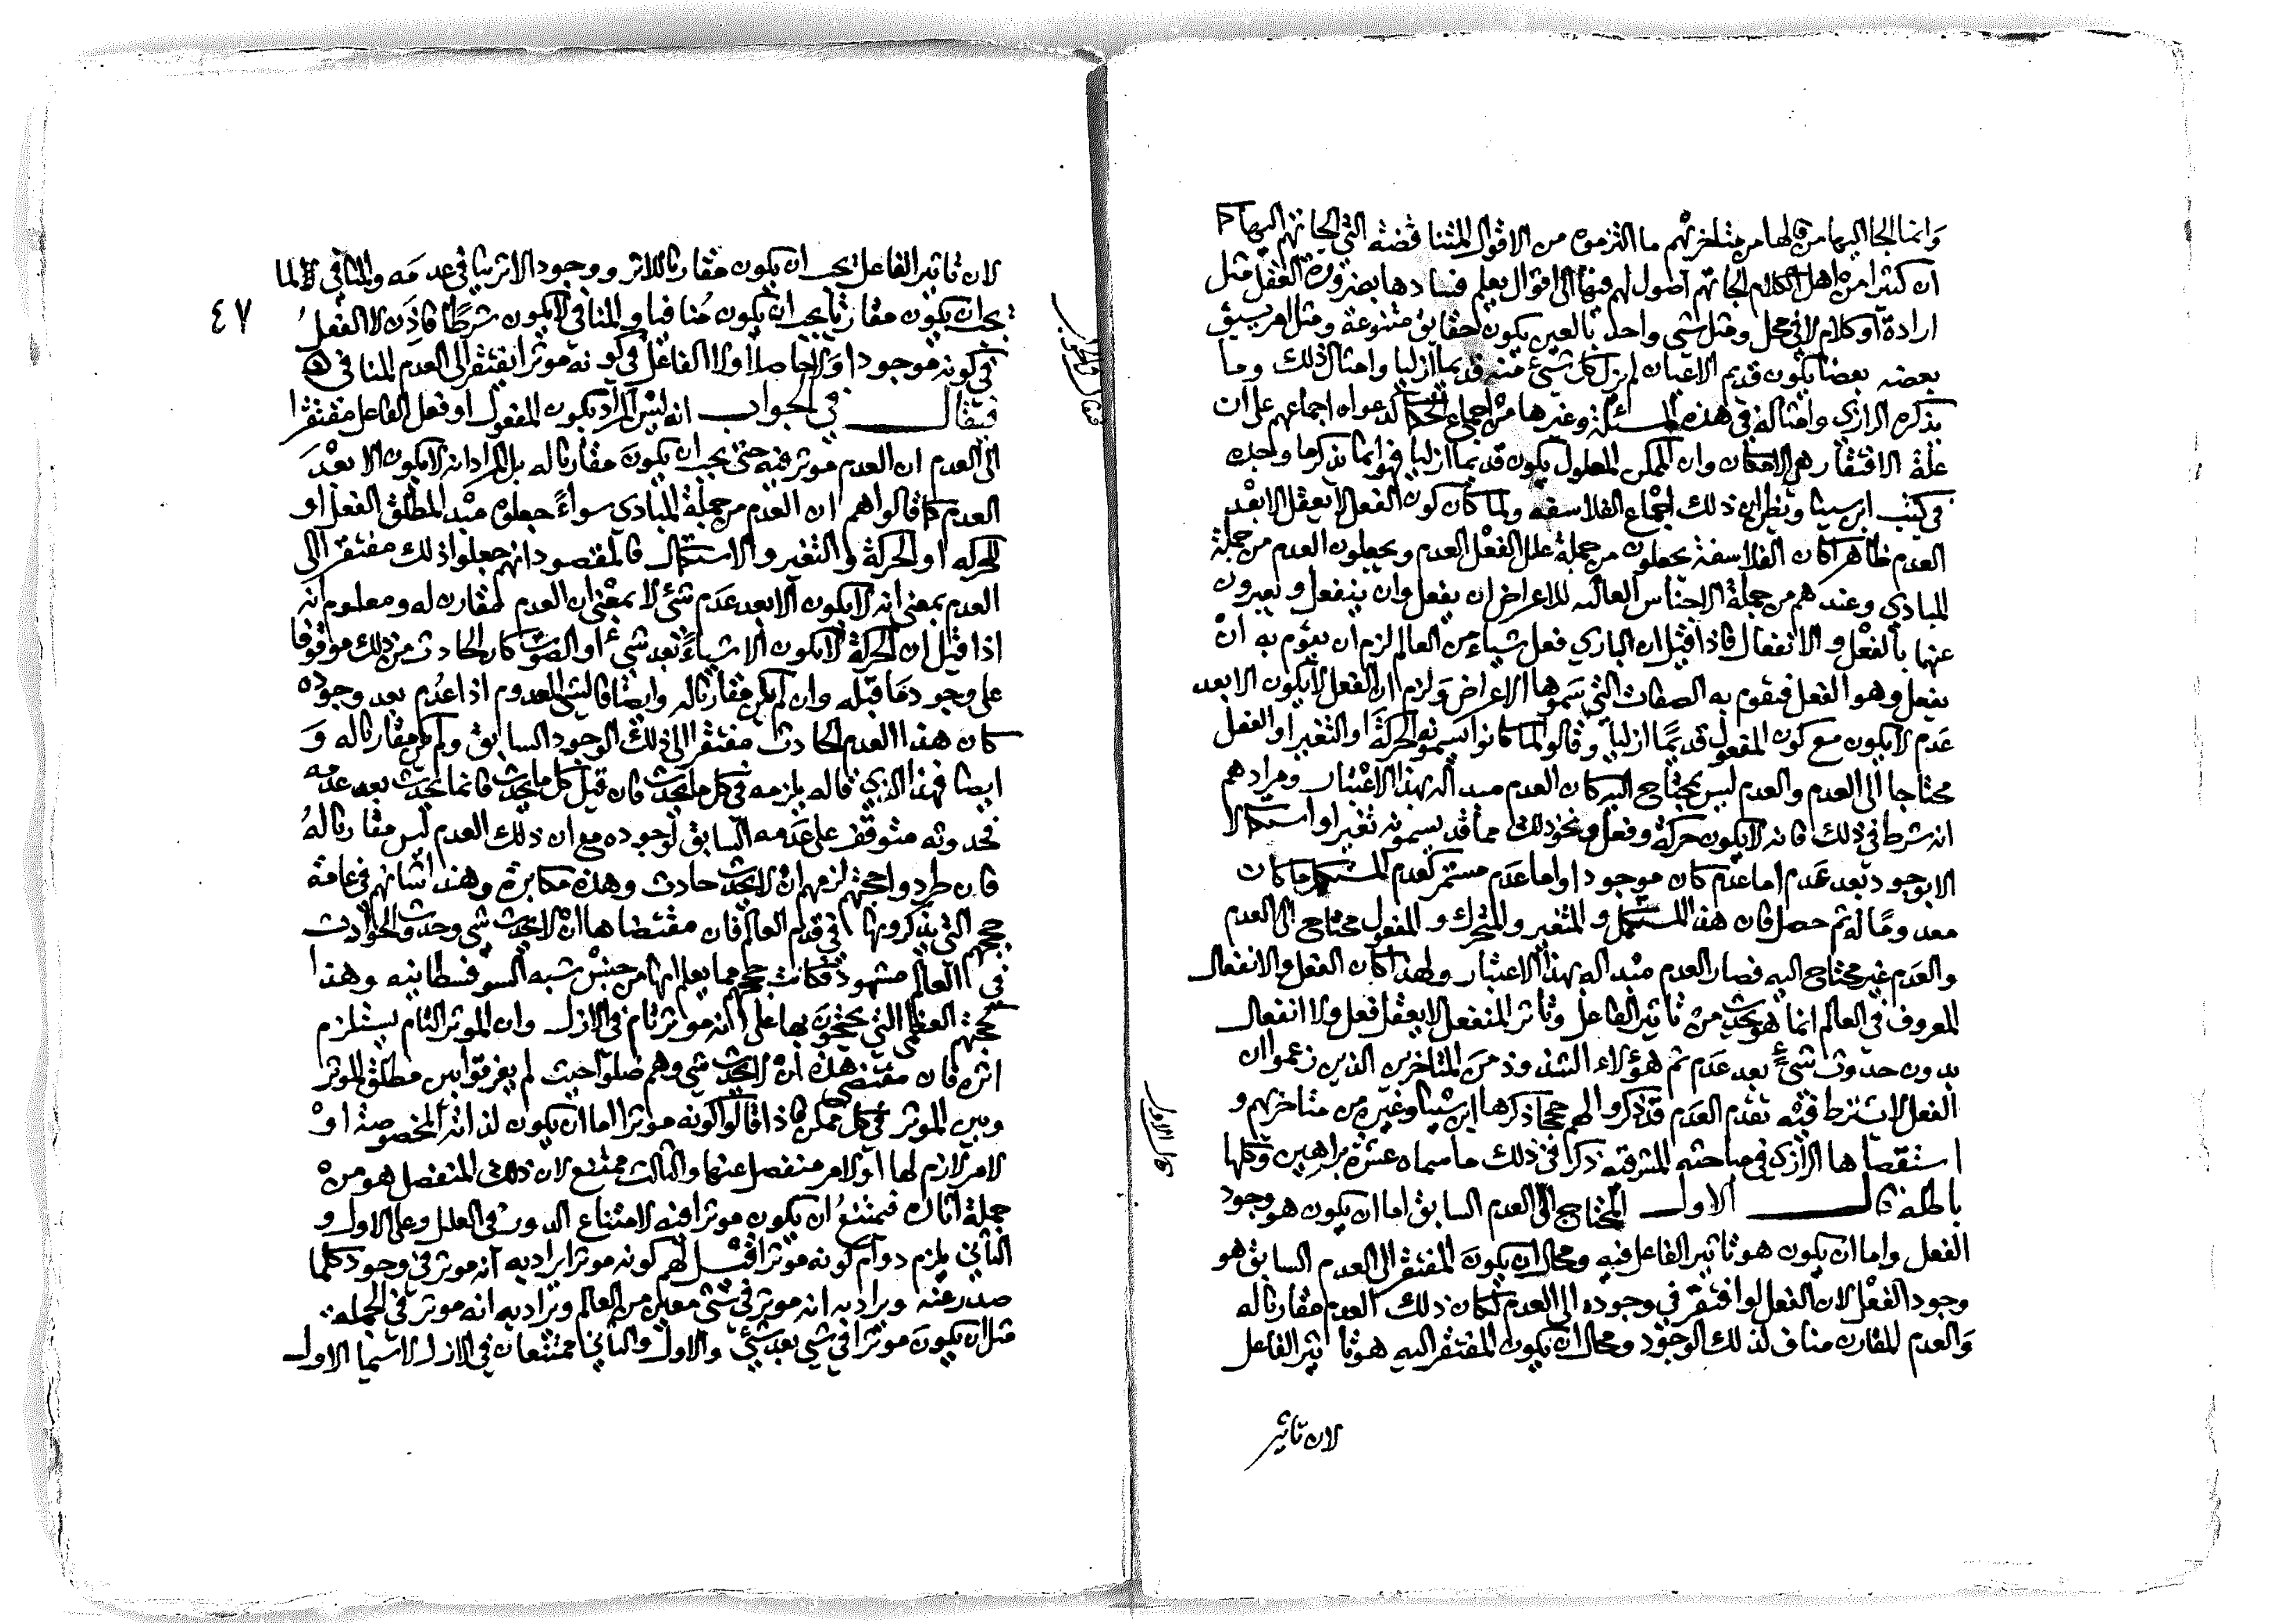 وانما الجا اليها من قالها من متاخريهم ما التزموه من الاقوال المتناقضة التي الجاتهم اليها كما
ان كثيرا من اهل الكلام الجاتهم اصول لهم فيها الى اقوال يعلم فسادها بضرورة العقل مثل
ارادة او كلام لا في محل ومثل شي واحد بالعين يكون حقايق متنوعة ومثل امر يسبق
بعضه بعضا يكون قديم الاعيان لم يزل كل شيء منه قديما ازليا وامثال ذلك وما
يذكره الرازي وامثاله في هذه المسئلة وغيرها من اجماع الحكما كدعواه اجماعهم على ان
علة الافتقار هي الامكان وان الممكن المعلول يكون قديما ازليا فهو انما يذكر ما وجده
في كتب ابن سينا ويظن ان ذلك اجماع الفلاسفه ولما كان كون الفعل لا يعقل الا بعد
العدم ظاهرا كان الفلاسفة يجعلون من جملة علل الفعل العدم ويجعلون العدم من جملة
المبادي وعندهم من جملة الاجناس العاليه للاعراض ان يفعل وان ينفعل ويعبرون
عنها بالفعل والانفعال فاذا قيل ان الباري فعل شياء من العالم لزم ان يقوم به ان
يفعل وهو الفعل فيقوم به الصفات التي سموها الاعراض ولزم ان الفعل لا يكون الا بعد
عدم لا يكون مع كون المفعول قديما ازليا وقالوا لما كانوا يسمونه الحركة او التغير او الفعل
محتاجا الى العدم والعدم ليس بمحتاج اليه كان العدم مبدا له بهذا الاعتبار ومرادهم
انه شرط في ذلك فانه لا يكون حركة وفعل ونحو ذلك مما قد يسمونه تغيرا او استكمالا
الا بوجود بعد عدم اما عدم كان موجودا واما عدم مستمر كعدم المستكمل ما كان
معدوما له ثم حصل فان هذا المستكمل والمتغير والمتحرك والمفعول محتاج الى العدم
والعدم غير محتاج اليه فصار العدم مبدا له بهذا الاعتبار ولهذا كان الفعل والانفعال
المعروف في العالم انما هو يحدث من تاثير الفاعل وتاثر المنفعل لا يعقل فعل ولا انفعال
بدون حدوث شيء بعد عدم ثم هؤلاء الشذوذ من المتاخرين الذين زعموا ان
الفعل لا يشترط فيه تقدم العدم قد ذكروا لهم حججا ذكرها ابن سينا وغيره من متاخريهم و
استقصاها الرازي في مباحثه المشرقيه ذكرا في ذلك ما سماه عشرة براهين وكلها
باطله قال الاول المحتاج الى العدم السابق اما ان يكون هو وجود
الفعل واما ان يكون هو تاثير الفاعل فيه ومحال ان يكون المفتقر الى العدم السابق هو
وجود الفعل لان الفعل لو افتقر في وجوده الى العدم لكان ذلك العدم مقارنا له
والعدم المقارن مناف لذلك الوجود ومحال ان يكون المفتقر اليه هو تاثير الفاعل
لان تاثير
قال الاول
فيقال في الجواب
٤٧
لان تاثير الفاعل يجب ان يكون مقارنا للاثر ووجود الاثر ينافي عدمه والمنافي لما
يجب ان يكون مقارنا يجب ان يكون منافيا والمنافي لا يكون شرطا فاذن لا الفعل
في كونه موجودا والحاصلا ولا الفاعل في كونه موثرا يفتقر الى العدم المنافي
فيقال في الجواب انه ليس المراد بكون المفعول او فعل الفاعل مفتقرا
الى العدم ان العدم موثر فيه حتى يجب ان يكون مقارنا له بل المراد انه لا يكون الا بعد
العدم كما قالوا هم ان العدم من جملة المبادي سواء جعلوه مبدا لمطلق الفعل او
للحركه او الحركة والتغير والاستكمال فالمقصود انهم جعلوا ذلك مفتقر الى
العدم بمعنى انه لا يكون الا بعد عدم شئ لا بمعنى ان العدم المقارن له ومعلوم انه
اذا قيل ان الحركة لا يكون الا شياء بعد شيء او الصوت كان الحادث من ذلك موقوفا
على وجود ما قبله وان لم يكن مقارنا له وايضا فالشي المعدوم اذا عدم بعد وجوده
كان هذا العدم الحادث مفتقرا الى ذلك الوجود السابق ولم يكن مقارنا له و
ايضا فهذا الذي قاله يلزمه في كل ما يحدث فان قيل كل ما يحدث فانما يحدث بعد عدمه
فحدوثه متوقف على عدمه السابق لوجوده مع ان ذلك العدم ليس مقارنا له
فان طردوا حجتهم لزمهم ان لا يحدث حادث وهذه مكابرة وهذا شانهم في عامة
حججهم التي يذكرونها في قدم العالم فان مقتضاها ان لا يحدث شي وحدوث الحوادث
في العالم مشهود فكانت حججهم مما يعلم انها من جنس شبه السوفسطانيه وهذا
كحجتهم العظمى التي يحتجون بها على انه موثر تام في الازل وان الموثر التام يستلزم
اثره فان مقتضى هذه ان لا يحدث شي وهم ضلوا حيث لم يفرقوا بين مطلق الموثر
وبين الموثر في كل ممكن فاذا قالوا كونه موثرا اما ان يكون لذاته المخصوصة او
لامر لازم لها او لامر منفصل عنها والثالث ممتنع لان ذلك المنفصل هو من
جملة اثاره فيمتنع ان يكون موثرا فيه لامتناع الدور في العلل وعلى الاول و
الثاني يلزم دوام كونه موثرا قيل لهم كونه موثرا يراد به انه موثر في وجود كلما
صدر عنه ويراد به انه موثر في شئ معين من العالم ويراد به انه موثر في الجمله
مثل ان يكون موثرا في شيي بعد شيئ والاول والثاني ممتنعان في الازل لا سيما الاول